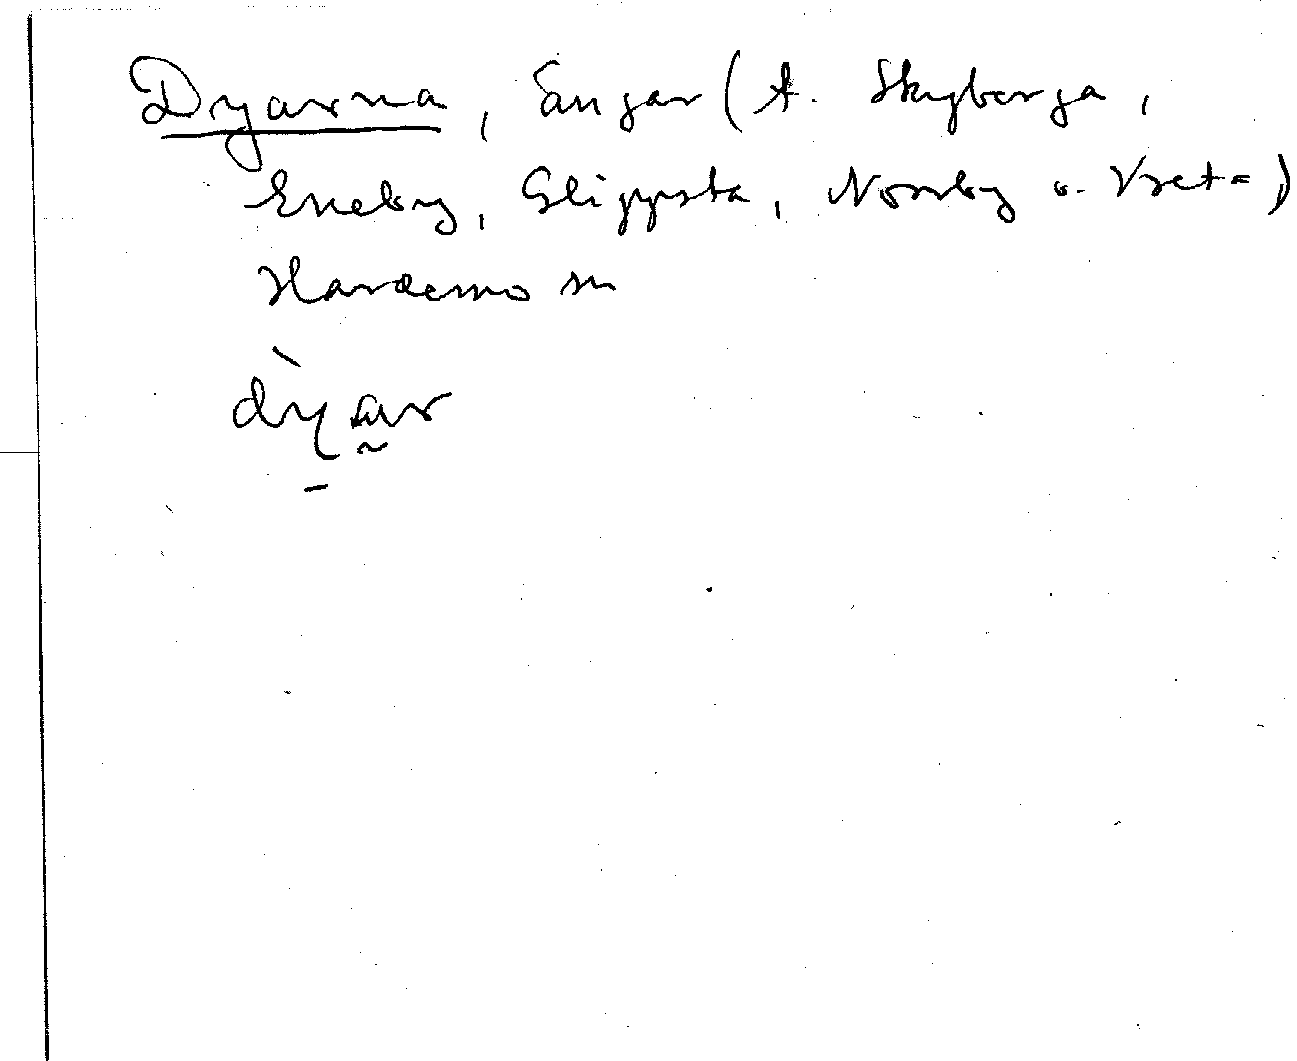 Dyarna, Ängar (A. Skyberga,
Eneby, Glippsta, Norrby o. Vreta)
Hardemo sn
dỳar